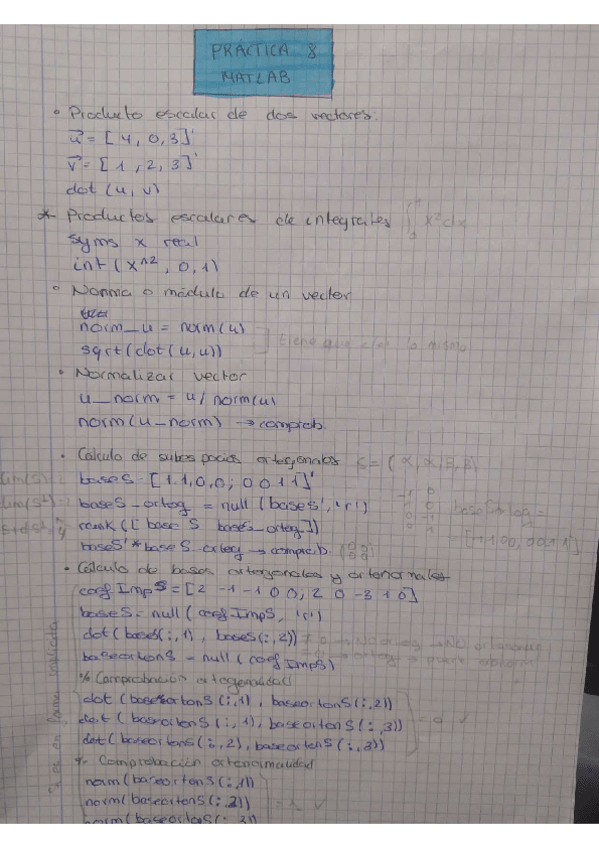 PRÁCTICA 8
MATLAB
• Producto escalar de dos vectores:
u = [4, 0, 3]'
v = [1, 2, 3]'
dot (u, v)
* Productos escalares de integrales x²dx
syms x real
int (x^2, 0, 1)
• Norma o módulo de un vector
norm_u = norm(u)
sqrt(dot(u,u)) ] tiene que dar lo mismo
• Normalizar vector
u_norm = u/norm(u)
norm(u_norm) → comprob.
• Cálculo de subespacios ortogonales
baseS = [1,1,0,0; 0 0 1 1]'
baseS_ortog = null(baseS','r')
rank([baseS baseS_ortog])
baseS'*baseS_ortog → comprob
• Cálculo de bases ortogonales y ortonormales
coefImpS = [2 -1 -1 0 0; 2 0 -3 1 0]
baseS = null(coefImpS, 'r')
dot(baseS(:,1), baseS(:,2))
baseortonS = null(coefImpS)
% Comprobación ortogonalidad
dot(baseortonS(:,1), baseortonS(:,2))
dot(baseortonS(:,1), baseortonS(:,3)) = 0 ✓
dot(baseortonS(:,2), baseortonS(:,3))
% Comprobación ortonormalidad
norm(baseortonS(:,1))
norm(baseortonS(:,2)) = 1 ✓
norm(baseortonS(:,3))